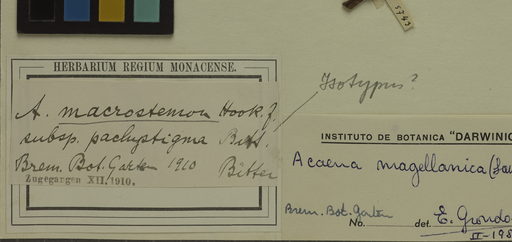 5743
HERBARIUM REGIUM MONACENSE.
A. macrostemon Hook. f.
subsp. pachystigma Bitt.
Brem. Bot. Garten 1910
Bitter
Zugegangen XII. 1910.
Isotypus?
INSTITUTO DE BOTANICA "DARWINIO
Acaena magellanica (Lam
Brem. Bot. Garten
No. det. E. Grondo
II-198